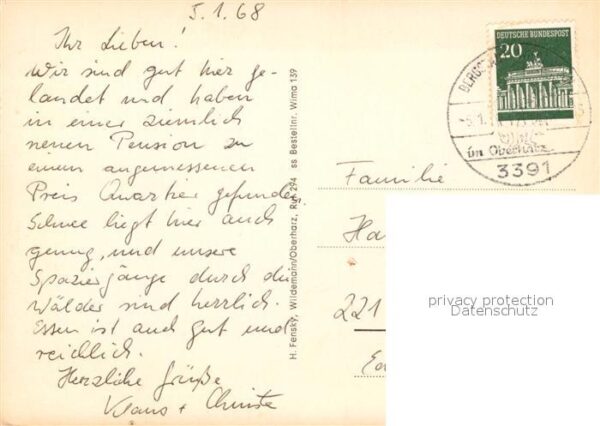 5.1.68
Ihr Lieben!
Wir sind gut hier ge-
landet und haben
in einer ziemlich
neuen Pension zu
einem angemessenen
Preis Quartier gefunden.
Schnee liegt hier auch
genug, und unsere
Spaziergänge durch die
Wälder sind herrlich.
Essen ist auch gut und
reichlich.
Herzliche Grüße
Klaus + Christa
H. Fensky, Wildemann/Oberharz, Ruf 294 ss Bestellnr. Wima 139
DEUTSCHE BUNDESPOST
20
im Oberharz
3391
Familie
Ha
221
privacy protection
Datenschutz